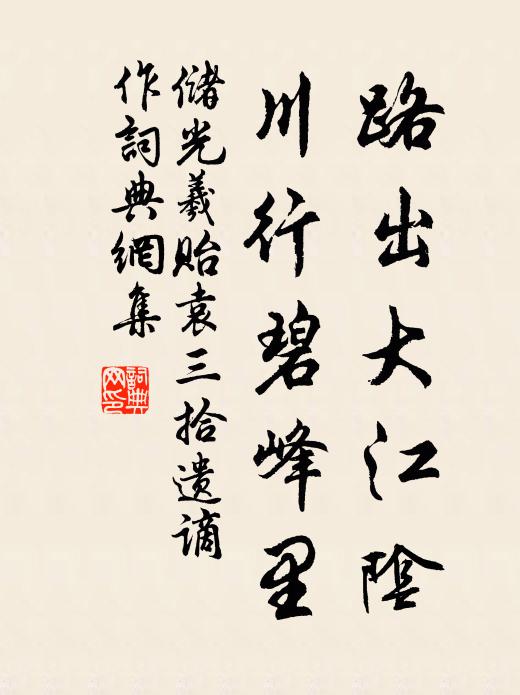 路出大江陰
川行碧峰里
儲光羲貽袁三拾遺謫
作詞典網集
詞典
网印